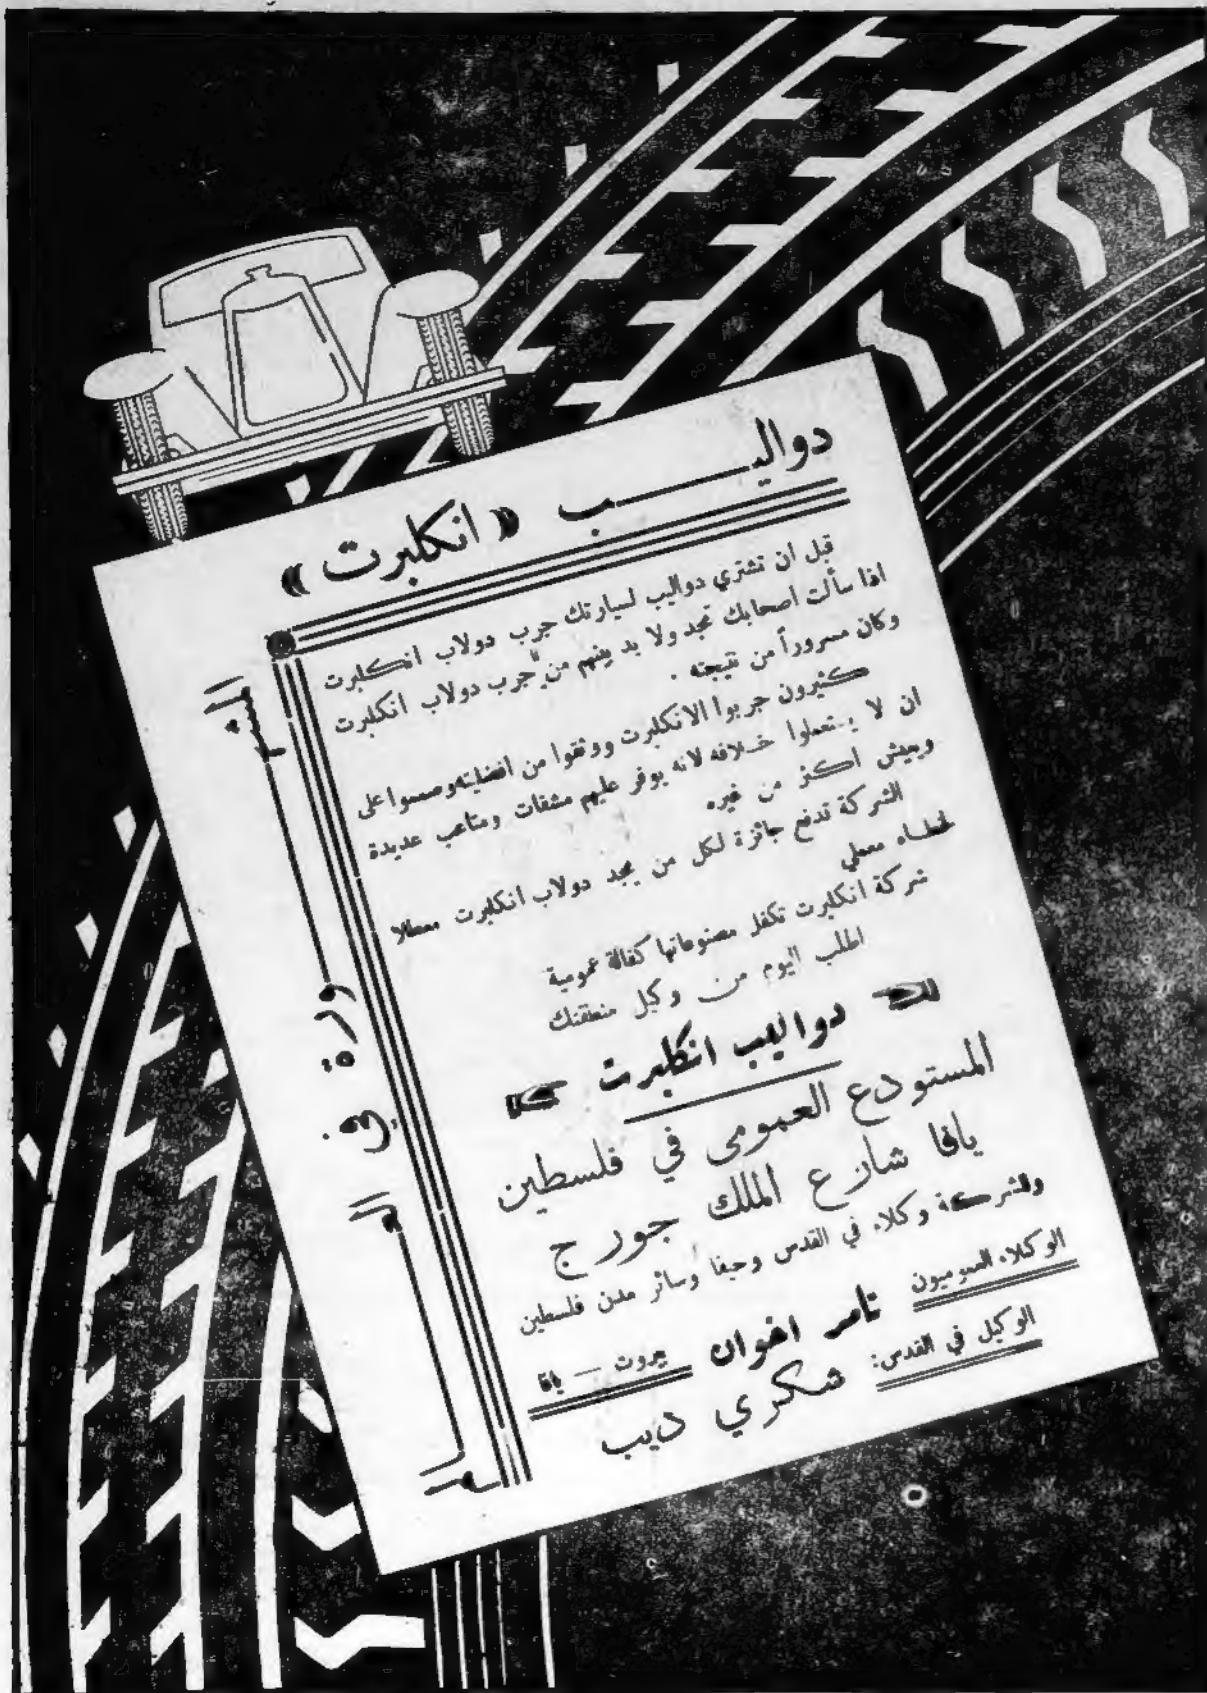 دواليب « انكلبرت »
قبل ان تشتري دواليب لسيارتك جرب دولاب انكلبرت
اذا سألت اصحابك تجد ولا بد بينهم من جرب دولاب انكلبرت
وكان مسروراً من نتيجته .
كثيرون جربوا الانكلبرت ووثقوا من افضليته وصمموا على
ان لا يستعملوا خلافه لانه يوفر عليهم مشقات ومتاعب عديدة
ويعيش اكثر من غيره
الشركة تدفع جائزة لكل من يجد دولاب انكلبرت معطلا
لخطاء معملي
شركة انكلبرت تكفل مصنوعاتها كفالة عمومية
اطلب اليوم من وكيل منطقتك
دواليب انكلبرت
المستودع العمومي في فلسطين
يافا شارع الملك جورج
وللشركة وكلاء في القدس وحيفا وسائر مدن فلسطين
الوكلاء العموميون تامر اخوان بيروت — يافا
الوكيل في القدس: شكري ديب
المشهورة في العالم